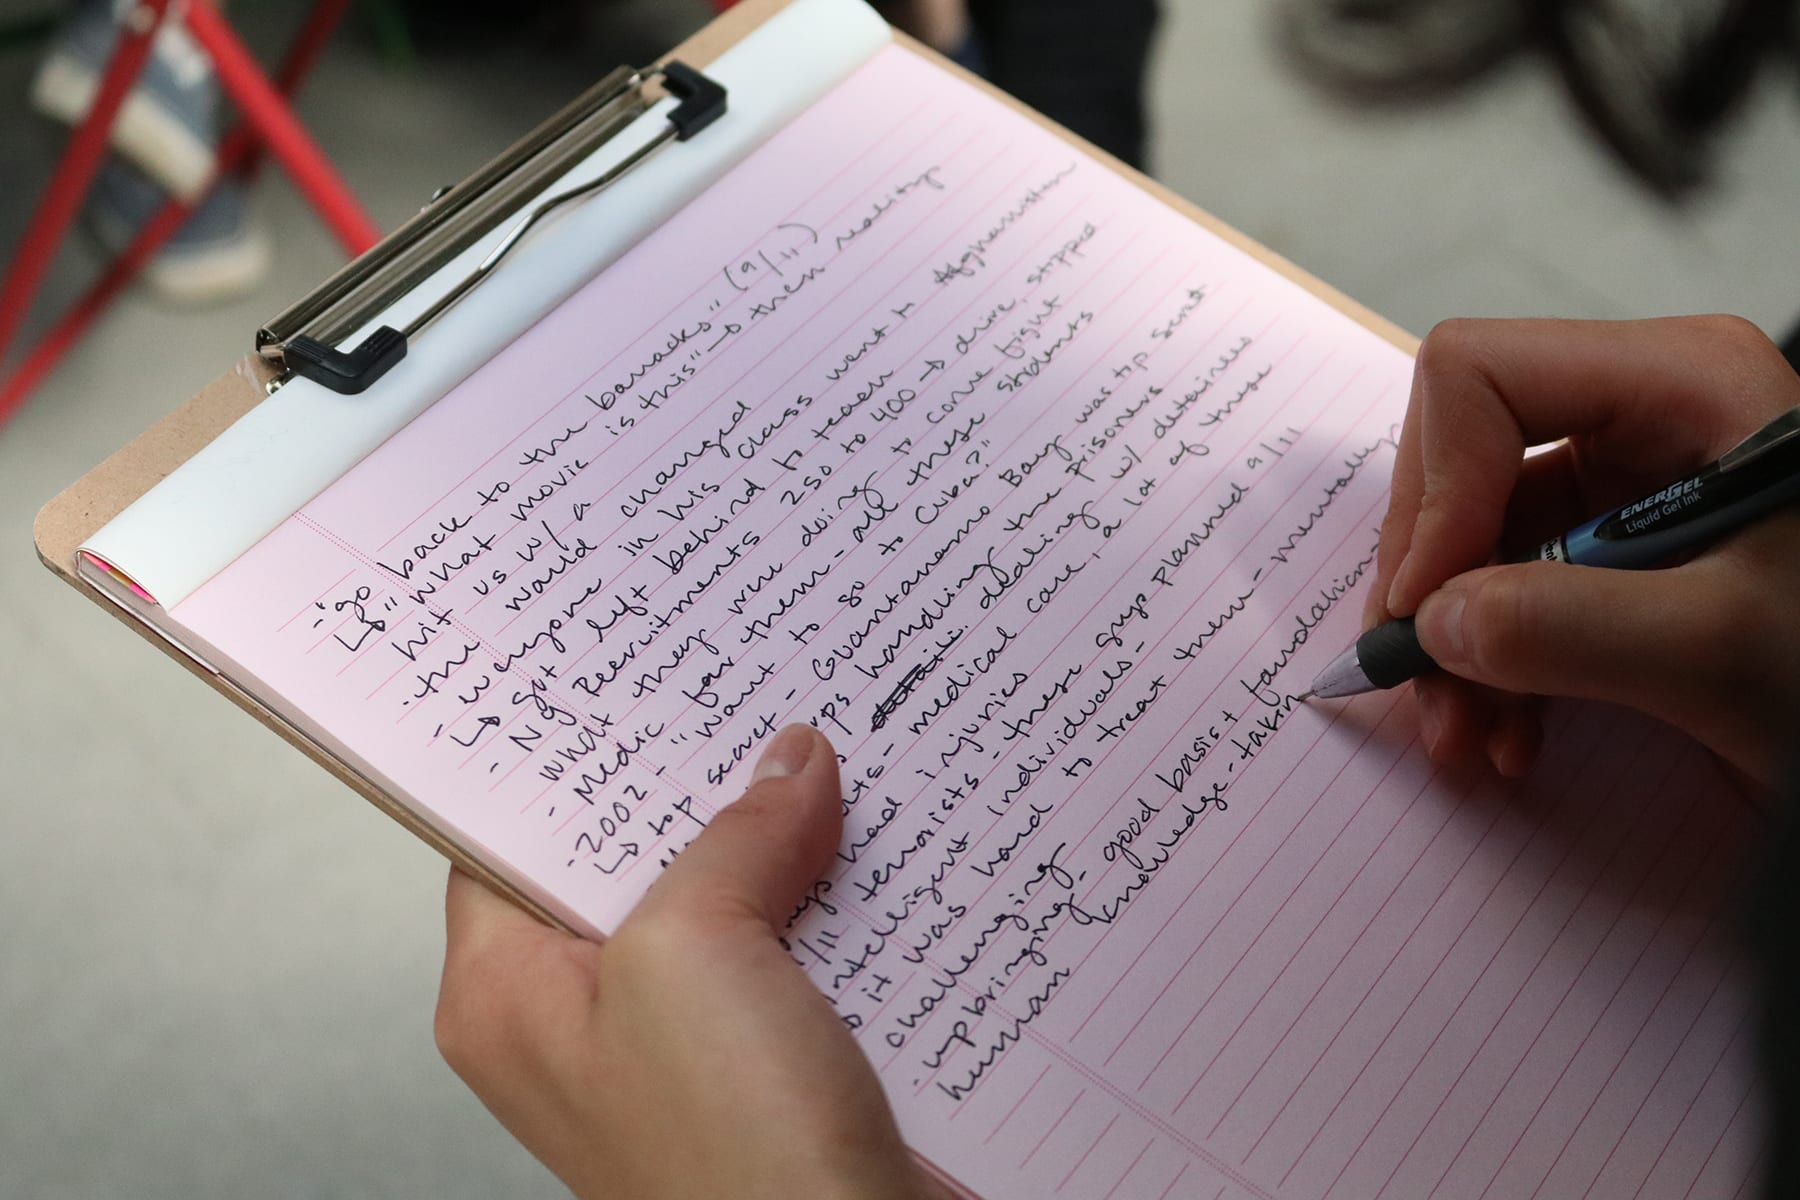 - "go back to the barracks" (9/11)
↳ "what movie is this" → then reality
hit us w/ a
· the world changed
- everyone in his class went to Afghanistan
↳ got left behind to teach
- Ng Recruitments 250 to 400 → drive, stipped
what they were doing to come fight
- Medic for them - all these students
- 2002 - "want to go to Cuba?"
↳ top secret - Guantanamo Bay was top secret
handling the prisoners
dealing w/ detainees
- medical care, a lot of these
had injuries
9/11 terrorists - these guys planned 9/11
intelligent individuals -
it was hard to treat them - mentally
challenging
· upbringing - good basis + foundational
human knowledge - takin
ENERGEL
Liquid Gel Ink